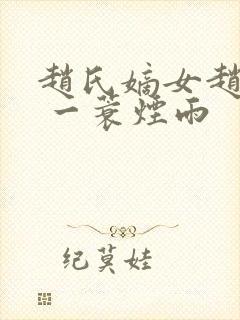 趙氏嫡女趙
一蓑煙雨
纪莫娃